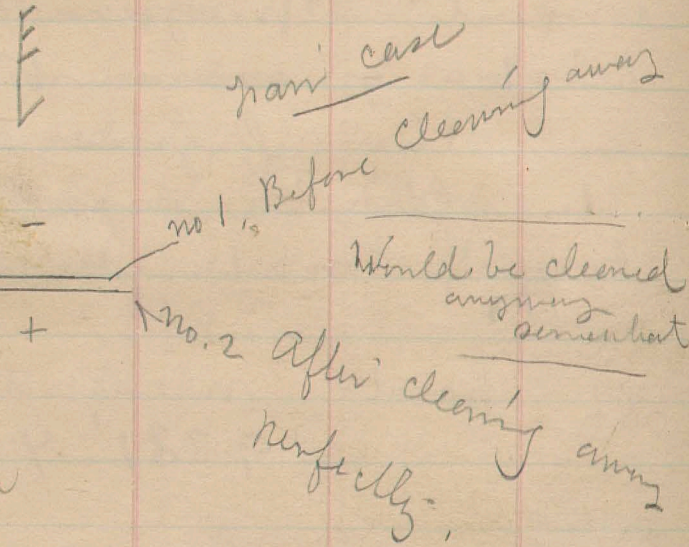 case
no 1. Before cleaning away
Would be cleaned
anyway
somewhat
-
+
no. 2 After cleaning away
perfectly.